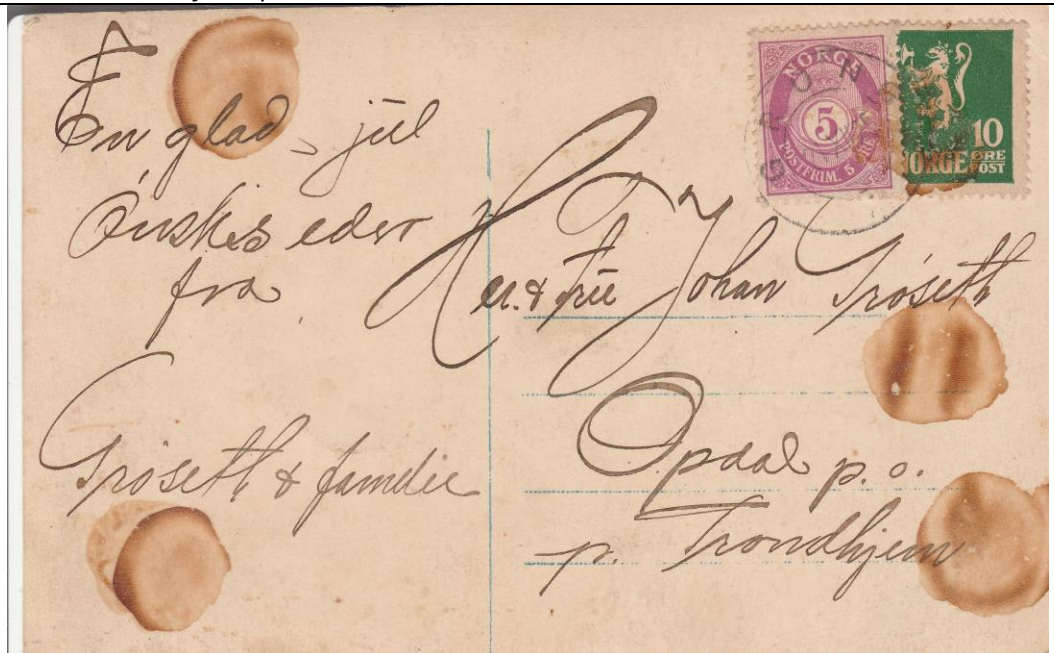 En glad jul
Ønskes eder
fra
Trøseth & familie
NORGE
5
POSTFRIM. 5 ØRE
10
NORGE ØRE
POST
Her. & Frue Johan Trøseth
Opdal p.o.
p. Trondhjem